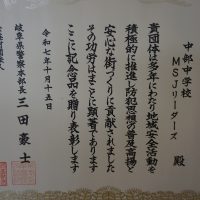 中部中学校
MSJリーダーズ 殿
貴団体は多年にわたり地域安全活動を
積極的に推進し防犯思想の普及高揚と
安心な街づくりに貢献されました
その功労はまことに顕著であります
ここに記念品を贈り表彰します
令和七年十月十五日
岐阜県警察本部長 三田豪士